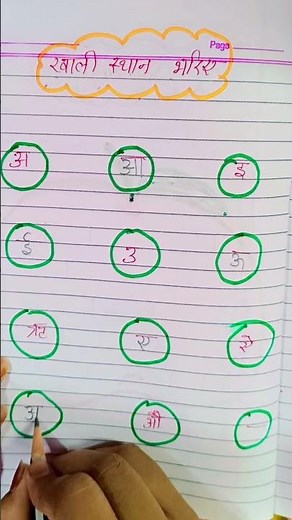 Page
खाली स्थान भरिए
अ आ इ
ई उ ऊ
ऋ ए ऐ
अ औ